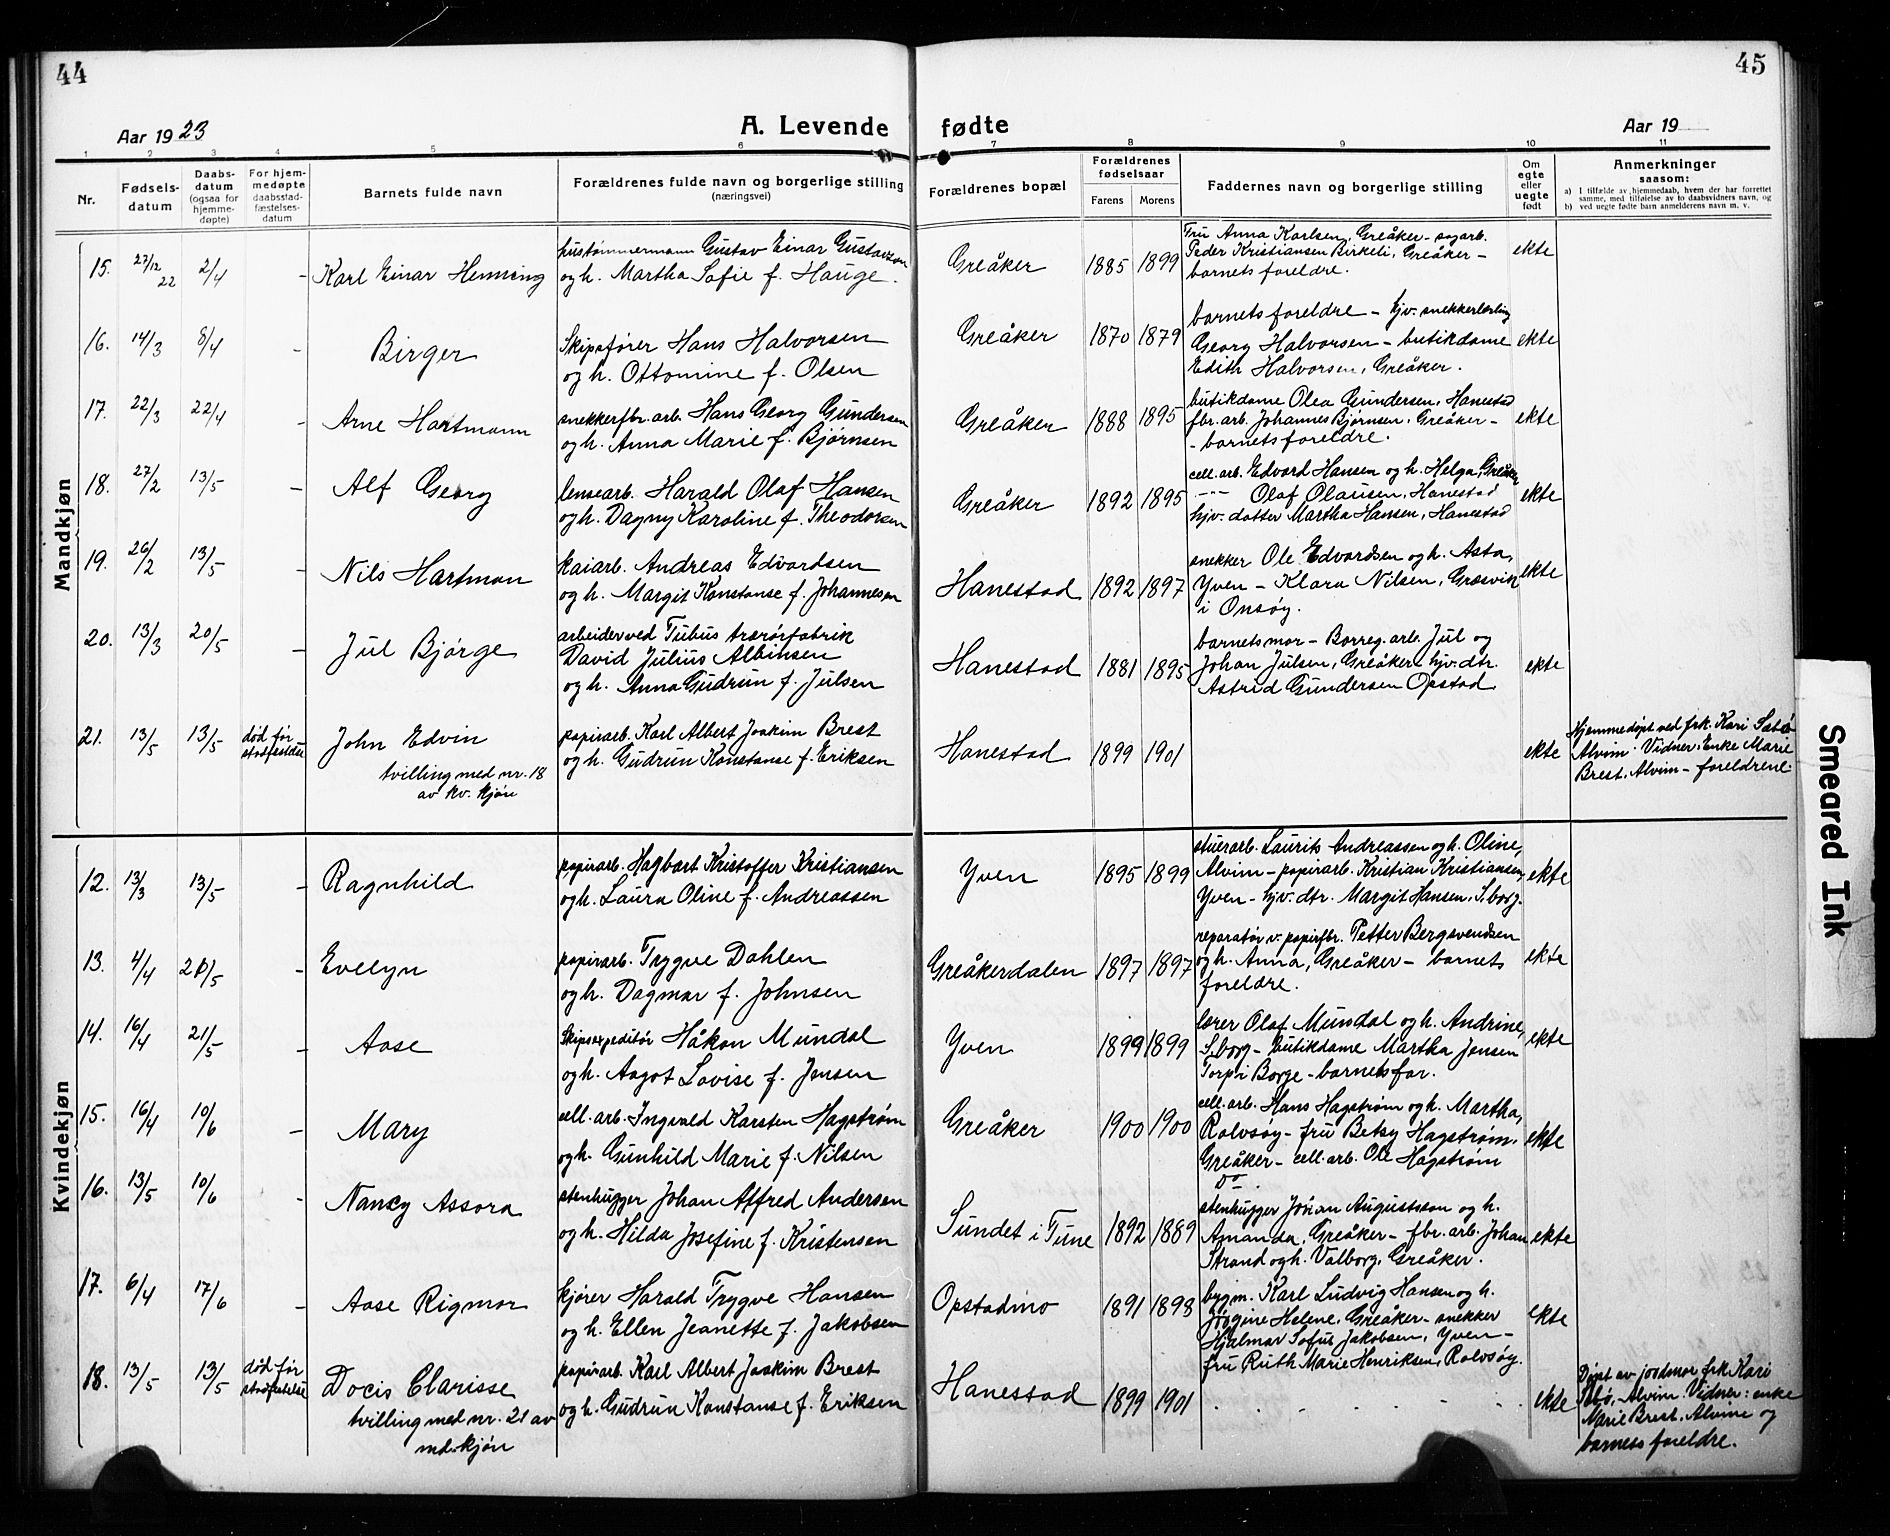 44
45
Aar 1923
A. Levende fødte
Aar 19
1 2 3 4 5 6 7 8 9 10 11
Nr.
Fødselsdatum
Daabsdatum (ogsaa for hjemmedøpte)
For hjemmedøpte daabsstadfæstelsesdatum
Barnets fulde navn
Forældrenes fulde navn og borgerlige stilling (næringsvei)
Forældrenes bopæl
Forældrenes fødselsaar
Farens
Morens
Faddernes navn og borgerlige stilling
Om egte eller uegte født
Anmerkninger saasom:
a) I tilfælde av hjemmedaab, hvem der har forrettet samme, med tilføielse av to daabsvidners navn, og
b) ved uegte fødte barn anmelderens navn m. v.
Mandkjøn
15. 27/12 22 2/4 - Karl Einar Henning
hustømmermann Gustav Einar Gustavson
og h. Martha Sofie f. Hauge.
Greåker 1885 1899
Fru Anna Karlsen, Greåker - sagarb.
Peder Kristiansen Birkeli, Greåker -
barnets foreldre.
ekte
16. 14/3 8/4 - Birger
Skipsfører Hans Halvorsen
og h. Ottomine f. Olsen
Greåker 1870 1879
barnets foreldre - hjv. snekkerlærling
Georg Halvorsen - butikdame
Edith Halvorsen, Greåker.
ekte
17. 22/3 22/4 - Arne Hartmann
snekkerfbr. arb. Hans Georg Gundersen
og h. Anna Marie f. Bjørnsen
Greåker 1888 1895
butikdame Olea Gundersen, Hanestad
fbr. arb. Johannes Bjørnsen, Greåker -
- barnets foreldre.
ekte
18. 27/2 13/5 - Alf Georg
lensearb. Harald Olaf Hansen
og h. Dagny Karoline f. Theodorsen
Greåker 1892 1895
cell. arb. Edvard Hansen og h. Helga, Greåker
--- Olaf Olausen, Hanestad
hjv. datter Martha Hansen, Hanestad
ekte
19. 26/2 13/5 - Nils Hartman
kaiarb. Andreas Edvardsen
og h. Margit Konstanse f. Johannesen
Hanestad 1892 1897
snekker Ole Edvardsen og h. Asta,
Yven - Klara Nilsen, Græsvik
i Onsøy.
ekte
20. 13/3 20/5 - Jul Bjørge
arbeider ved Tubus trærørfabrik
David Julius Albinsen
og h. Anna Gudrun f. Julsen
Hanestad 1881 1895
barnets mor - Borreg. arb. Jul og
Johan Julsen, Greåker - hjv. dtr.
Astrid Gundersen Opstad
ekte
21. 13/5 13/5 død før stadfæstelse John Edvin
tvilling med nr. 18
av kv. kjøn
papirarb. Karl Albert Joakim Brest
og h. Gudrun Konstanse f. Eriksen
Hanestad 1899 1901
ekte
Hjemmedøpt ved frk. Kari
Alvim. Vidner: Enke Marie
Brest, Alvim - foreldrene.
Kvindekjøn
12. 13/3 13/5 - Ragnhild
papirarb. Hagbart Kristoffer Kristiansen
og h. Laura Oline f. Andreassen
Yven 1895 1899
stuerarb. Laurits Andreassen og h. Oline,
Alvim - papirarb. Kristian Kristiansen,
Yven - hjv. dtr. Margit Hansen, S.borg.
ekte
13. 4/4 20/5 - Evelyn
papirarb. Trygve Dahlen
og h. Dagmar f. Johnsen
Greåkerdalen 1897 1897
reparatør v. papirfbr. Petter Bergsvendsen
og h. Anna, Greåker - barnets
foreldre.
ekte
14. 16/4 21/5 - Aase
Skipsexpeditør Håkon Mundal
og h. Aagot Lovise f. Jensen
Yven 1899 1899
lærer Olaf Mundal og h. Andrine,
S.borg - butikdame Martha Jensen
Torp i Borge - barnets far.
ekte
15. 16/4 10/6 - Mary
cell. arb. Ingvald Karsten Hagstrøm
og h. Gunhild Marie f. Nilsen
Greåker 1900 1900
cell. arb. Hans Hagstrøm og h. Martha,
Rolvsøy - fru Betsy Hagstrøm,
Greåker - cell. arb. Ole Hagstrøm
Do.
ekte
16. 13/5 10/6 - Nancy Assora
stenhugger Johan Alfred Andersen
og h. Hilda Josefine f. Kristensen
Sundet i Tune 1892 1889
stenhugger Johan Augustsson og h.
Amanda, Greåker - fbr. arb. Johan
Strand og h. Valborg, Greåker.
ekte
17. 6/4 17/6 - Aase Rigmor
kjører Harald Trygve Hansen
og h. Ellen Jeanette f. Jakobsen
Opstadmo 1891 1898
bygm. Karl Ludvig Hansen og h.
Jørgine Helene, Greåker - snekker
Hjalmar Sofus Jakobsen, Yven -
fru Ruth Marie Henriksen, Rolvsøy.
ekte
18. 13/5 13/5 død før stadfæstelse Docis Clarisse
tvilling med nr. 21 av
md. kjøn
papirarb. Karl Albert Joakim Brest
og h. Gudrun Konstanse f. Eriksen
Hanestad 1899 1901
ekte
Døpt av jordmor frk. Kari
Alvim. Vidner: enke
Marie Brest, Alvim og
barnets foreldre.
Smeared Ink